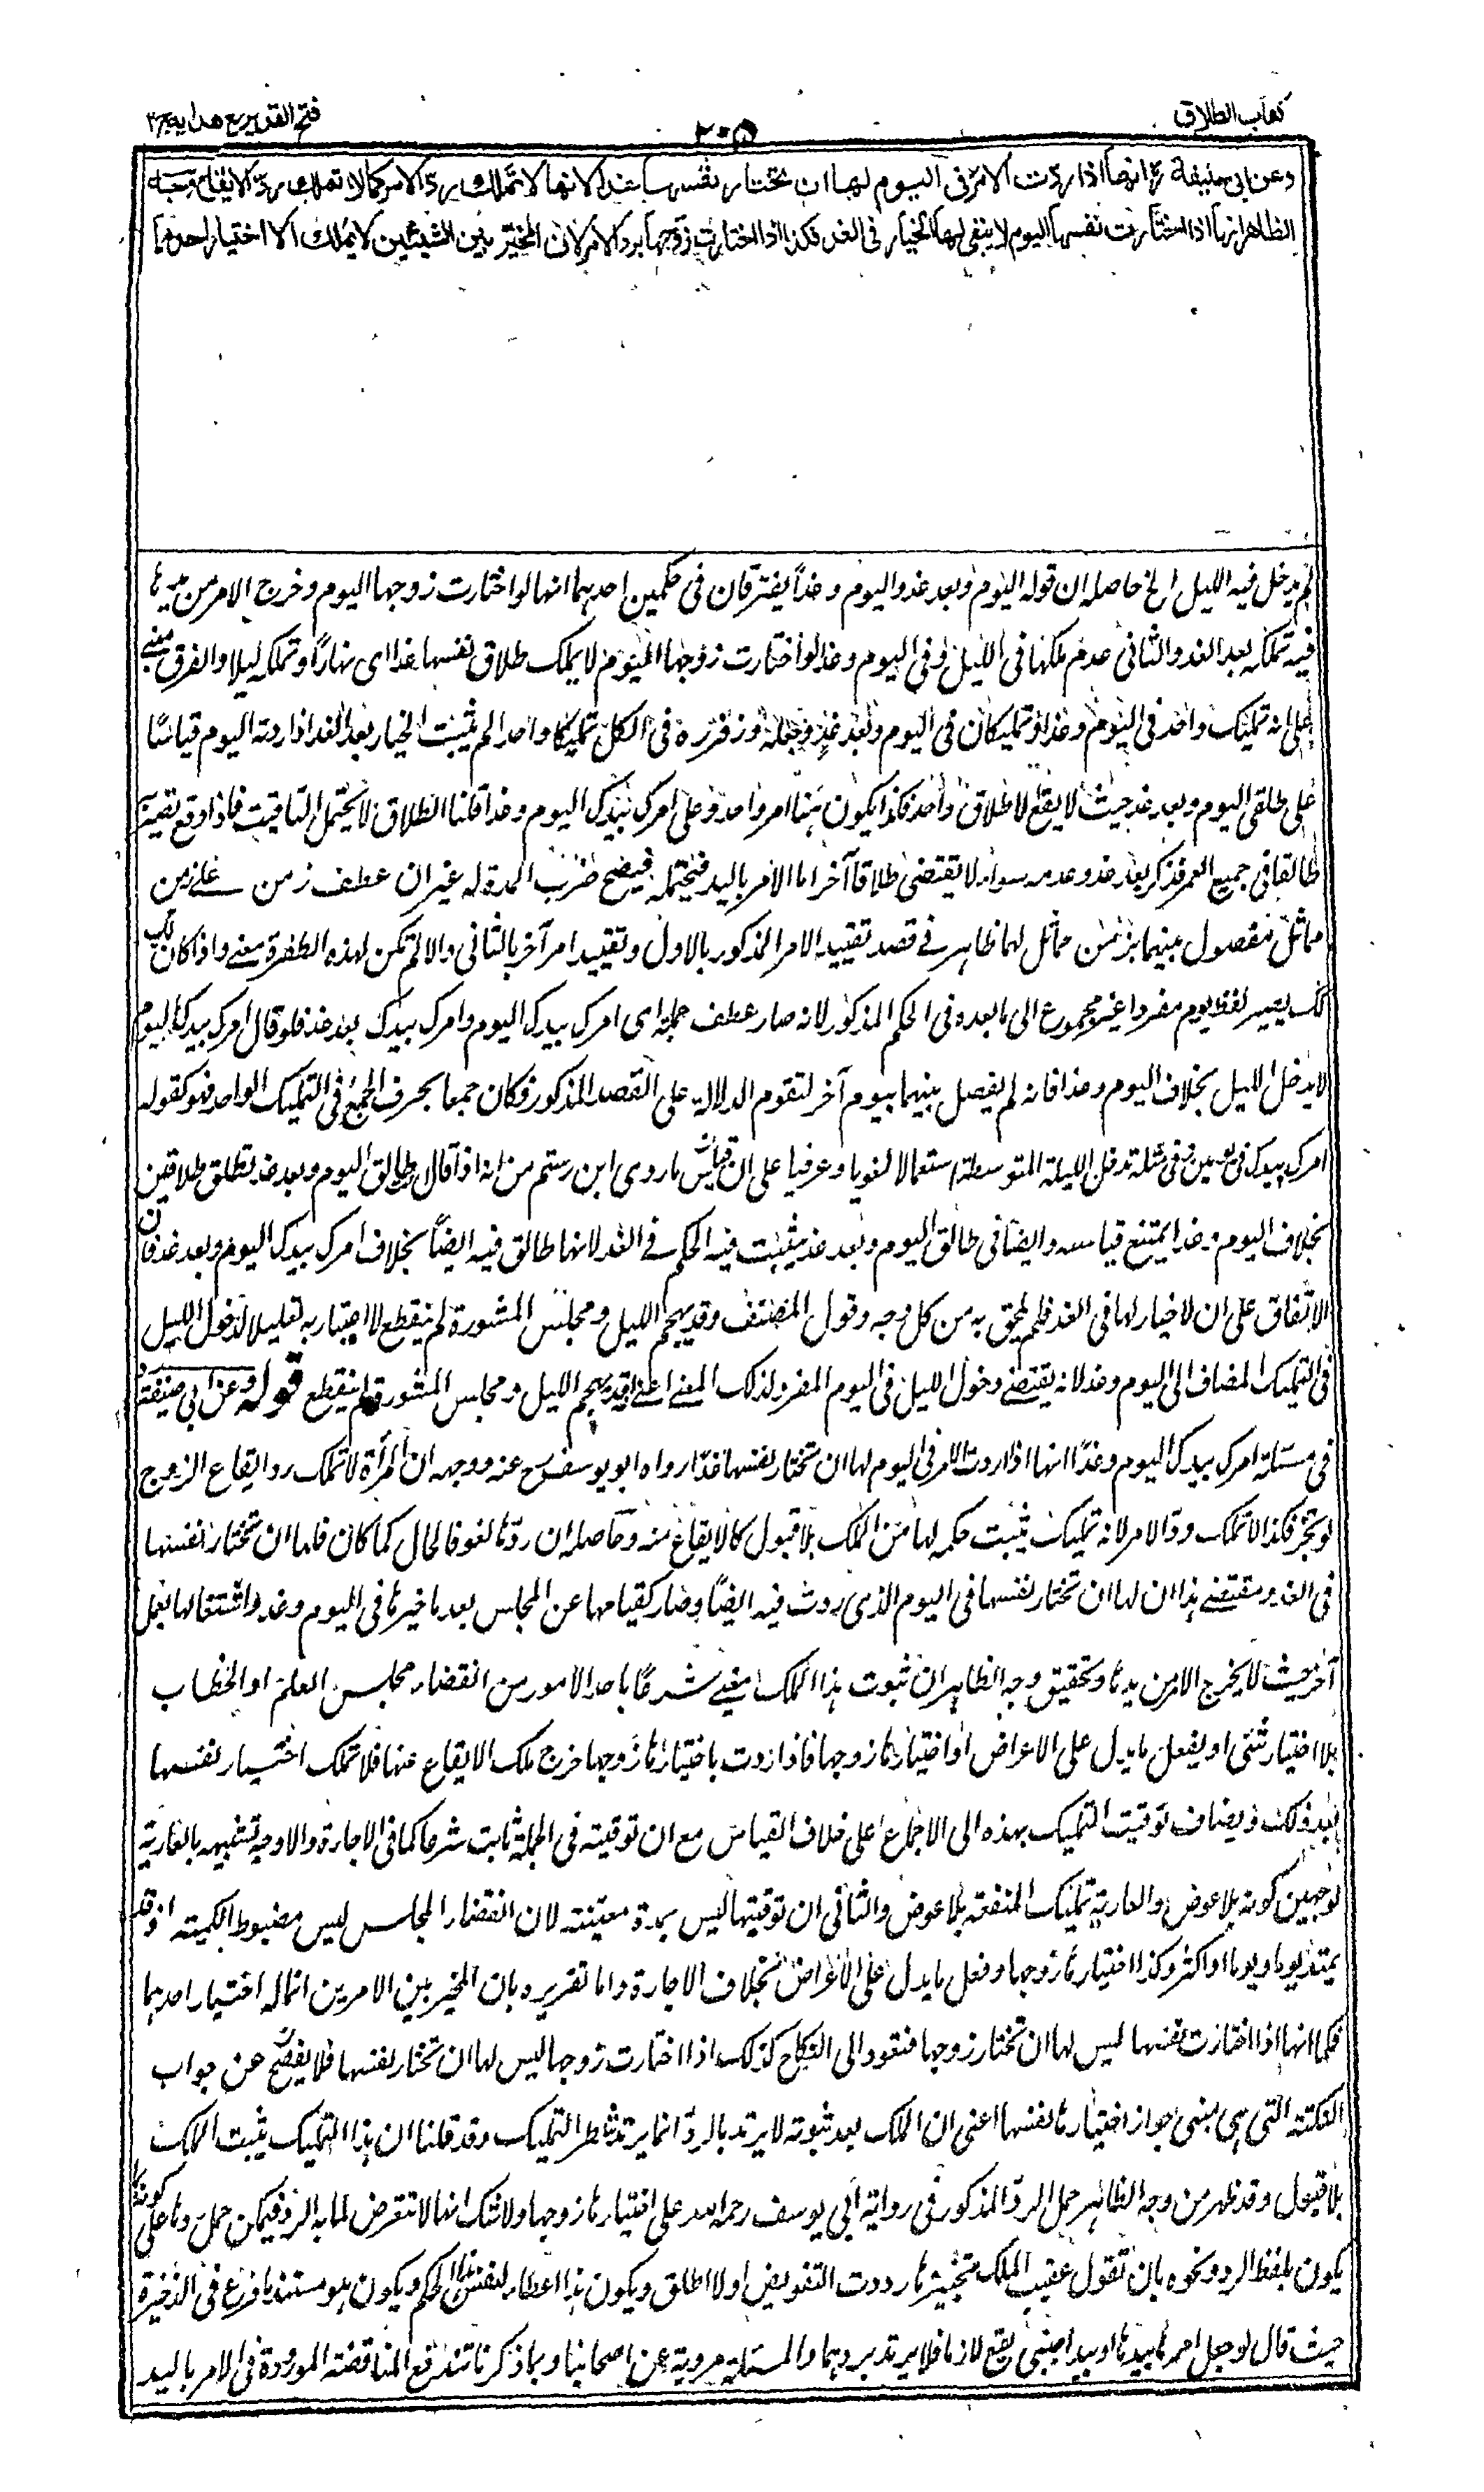 كتاب الطلاق
٢٠٥
فتح القدير مع هدايه ج٢
وعن ابي حنيفة رح انها اذا ردت الامر في اليوم لها ان تختار نفسها غدا لانها لا تملك رد الامر كما لا تملك رد الايقاع وجه
الظاهر انها اذا اختارت نفسها اليوم لا يبقى لها الخيار في الغد فكذا اذا اختارت زوجها برد الامر لان المخير بين الشيئين لا يملك الا اختيار احدهما
لم يدخل فيه الليل الخ حاصله ان قوله اليوم وبعد غد واليوم وغدا يفترقان في حكمين احدهما انها لو اختارت زوجها اليوم وخرج الامر من يدها
فيه تملكه بعد الغد والثاني عدم ملكها في الليل وفي اليوم وغدا لو اختارت زوجها اليوم لا يملك طلاق نفسها غدا اى نهارا وتملكه ليلا والفرق مبنى
على انه تمليك واحد في اليوم وغدا وتمليكان في اليوم وبعد غد وجعله زفر رح في الكل تمليكا واحدا لم يثبت الخيار بعد الغد اذا ردته اليوم قياسا
على طلقي اليوم وبعد غد حيث لا يقع الا طلاق واحد فكذا يكون هنا امر واحد وعلى امرك بيدك اليوم وغدا قلنا الطلاق لا يحتمل التاقيت فاذا وقع تصير
طالقا في جميع العمر فذكر بعد غد وعدمه سواء لا يقتضى طلاقا آخر اما الامر باليد فيحتمله فيصح ضرب المدة له غير ان عطف زمن على زمن
مماثل مفصول بينهما بزمن مماثل لهما ظاهر في قصد تقييد الامر المذكور بالاول وتقييد امر آخر بالثاني والا لم تكن لهذه الطفرة معنى واذا كان كذ
لك يصير لفظ يوم مفردا غير مجموع الى ما بعده في الحكم المذكور لانه صار عطف جملة اى امرك بيدك اليوم وامرك بيدك بعد غد فلو قال امرك بيدك اليوم
لا يدخل الليل بخلاف اليوم وغدا فانه لم يفصل بينهما بيوم آخر لتقوم الدلالة على القصد المذكور فكان جمعا بحرف الجمع في التمليك الواحد فهو كقوله
امرك بيدك في يومين وفي مثله تدخل الليلة المتوسطة استعمالا لغويا وعرفيا على ان قياس ما روى ابن رستم من انه اذا قال طالق اليوم وبعد غد تطلق طلاقين
بخلاف اليوم وغدا يمتنع قياسه وايضا في طالق اليوم وبعد غد يثبت فيه الحكم في الغد لانها طالق فيه ايضا بخلاف امرك بيدك اليوم وبعد غد فان
الاتفاق على ان لا خيار لها في الغد فلم يلحق به من كل وجه وقول المصنف وقد يهجم الليل ومجلس المشورة لم ينقطع لا اعتبار به تعليلا لدخول الليل
في التمليك المضاف الى اليوم وغد لانه يقتضى دخول الليل في اليوم المفرد لذلك المعنى اعنى قد يهجم الليل ومجلس المشورة لم ينقطع قوله وعن ابي حنيفة رح
في مسئلة امرك بيدك اليوم وغدا انها اذا ردت الامر في اليوم لها ان تختار نفسها غدا رواه ابو يوسف رح عنه ووجهه ان المرأة لا تملك رد ايقاع الزوج
لو نجز فكذا لا تملك رد الامر لانه تمليك يثبت حكمه لها من الملك بلا قبول كالايقاع منه وحاصله ان ردها لغو فالحال كما كان فلها ان تختار نفسها
في الغد ومقتضى هذا ان لها ان تختار نفسها في اليوم الذى ردت فيه ايضا وصار كقيامها عن المجلس بعد ما خيرها في اليوم وغد واشتغالها بعمل
آخر حيث لا يخرج الامر من يدها وتحقيق وجه الظاهر ان ثبوت هذا الملك مغيى شرعا باحد الامور من انقضاء مجلس العلم او الخطاب
بلا اختيار شئ او يفعل ما يدل على الاعراض او اختيارها زوجها فاذا ردت باختيارها زوجها خرج ملك الايقاع عنها فلا تملك اختيار نفسها
بعد ذلك ويضاف توقيت التمليك بهذه الى الاجماع على خلاف القياس مع ان توقيته في الجملة ثابت شرعا كما في الاجارة والاوجه تشبيهه بالعارية
لوجهين كونه بلا عوض والعارية تمليك المنفعة بلا عوض والثاني ان توقيتها ليس بمدة معينة لان انقضاء المجلس ليس مضبوط الكمية اذ قد
يمتد يوما ويوما او اكثر وكذا اختيارها زوجها وفعل ما يدل على الاعراض بخلاف الاجارة واما تقريره بان المخير بين الامرين انما له اختيار احدهما
فكما انها اذا اختارت نفسها ليس لها ان تختار زوجها فتعود الى النكاح كذلك اذا اختارت زوجها ليس لها ان تختار نفسها فلا يفصح عن جواب
النكتة التي هى مبنى جواز اختيارها نفسها اعنى ان الملك بعد ثبوته لا يرتد بالرد انما يرتد شطر التمليك وقد قلنا ان هذا التمليك يثبت الملك
بلا قبول وقد ظهر من وجه الظاهر حمل الرد المذكور في رواية ابي يوسف رحمه الله على اختيارها زوجها ولا شك انها لا تتعرض لما به الرد فيمكن حمل ردها على كونه
يكون بلفظ الرد ونحوه بان تقول عقيب الملك بتخييرها رددت التفويض او لا اطلق ويكون هذا اعطاء لنفس هذا الحكم ويكون هو مستند ما فرع في الذخيرة
حيث قال لو جعل امرها بيدها او بيد اجنبى يقع لازما فلا يرتد بردهما والمسئلة مروية عن اصحابنا وبما ذكرنا تندفع المناقضة الموردة في الامر باليد